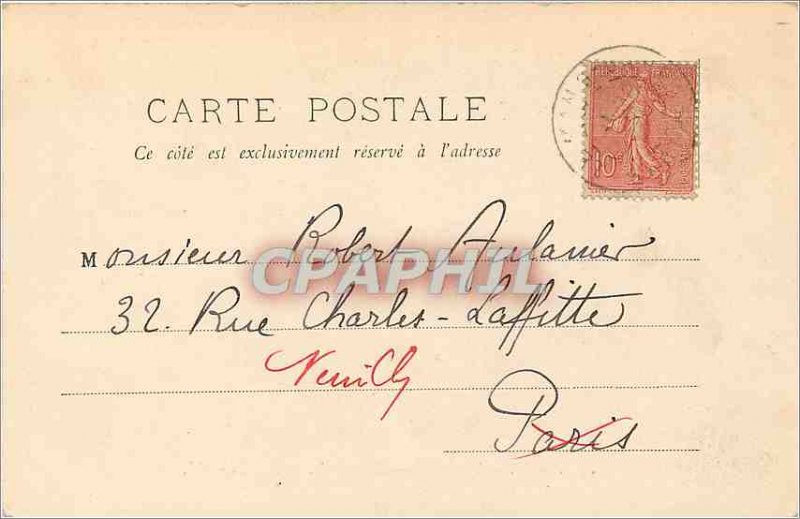 CARTE POSTALE
Ce côté est exclusivement réservé à l'adresse
RÉPUBLIQUE FRANÇAISE
10c
Monsieur Robert Aulanier
CPAPHIL
32. Rue Charles-Laffitte
Neuilly
Paris